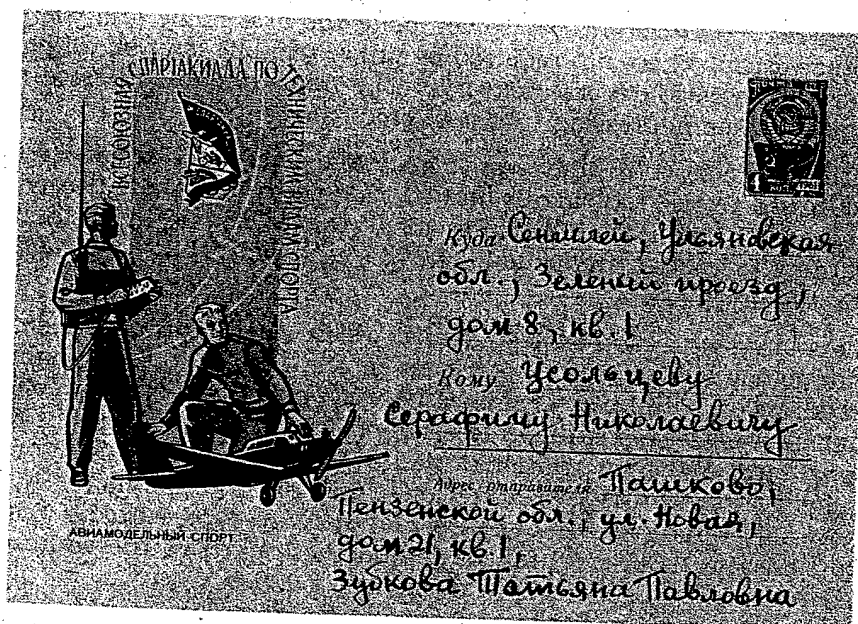 ВСЕСОЮЗНАЯ СПАРТАКИАДА ПО ТЕХНИЧЕСКИМ ВИДАМ СПОРТА
ПОЧТА СССР
4 КОП. 1961
Куда Сенгилей, Ульяновская
обл., Зелений проезд,
дом 8, кв. 1
Кому Усольцеву
Серафиму Николаевичу
Адрес отправителя Пашково,
Пензенской обл., ул. Новая,
дом 21, кв. 1,
Зубкова Татьяна Павловна
АВИАМОДЕЛЬНЫЙ СПОРТ